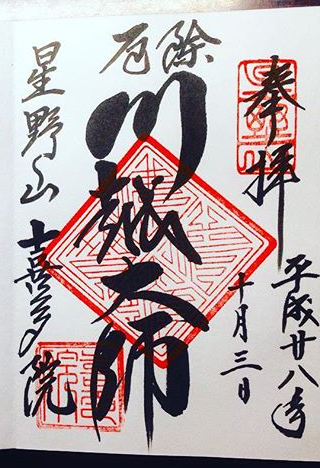 奉拝
平成廿八年
十月三日
厄除
川越大師
星野山
喜多院